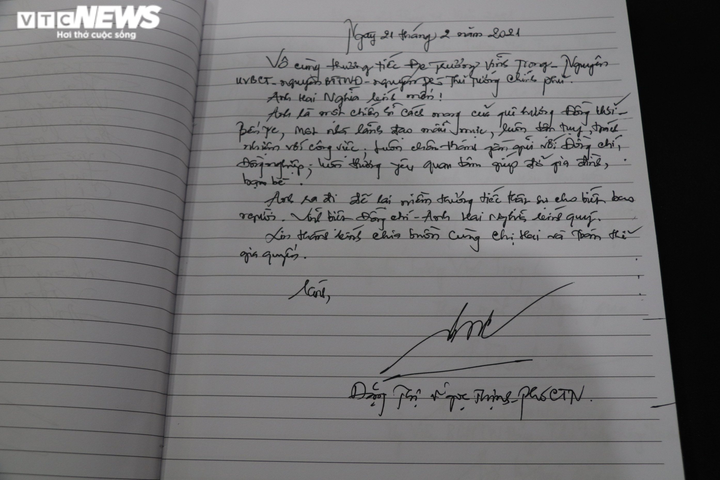 VTC NEWS
Hơi thở cuộc sống
Ngày 21 tháng 2 năm 2021
Vô cùng thương tiếc Đc Trương Vĩnh Trọng - Nguyên
UVBCT - nguyên BTTWĐ - nguyên Phó Thủ tướng Chính phủ.
Anh Hai Nghĩa kính mến!
Anh là một chiến sĩ cách mạng của quê hương Đồng Khởi -
Bến Tre, một nhà lãnh đạo mẫu mực, luôn tận tụy, trách
nhiệm với công việc, luôn chân thành gần gũi với đồng chí,
đồng nghiệp, luôn thương yêu quan tâm giúp đỡ gia đình,
bạn bè.
Anh ra đi để lại niềm thương tiếc sâu sắc cho biết bao
người. Vĩnh biệt Đồng chí - Anh Hai Nghĩa kính quý.
Xin thành kính chia buồn cùng chị Hai và toàn thể
gia quyến.
Kính,
Đặng Thị Ngọc Thịnh - Phó CTN.